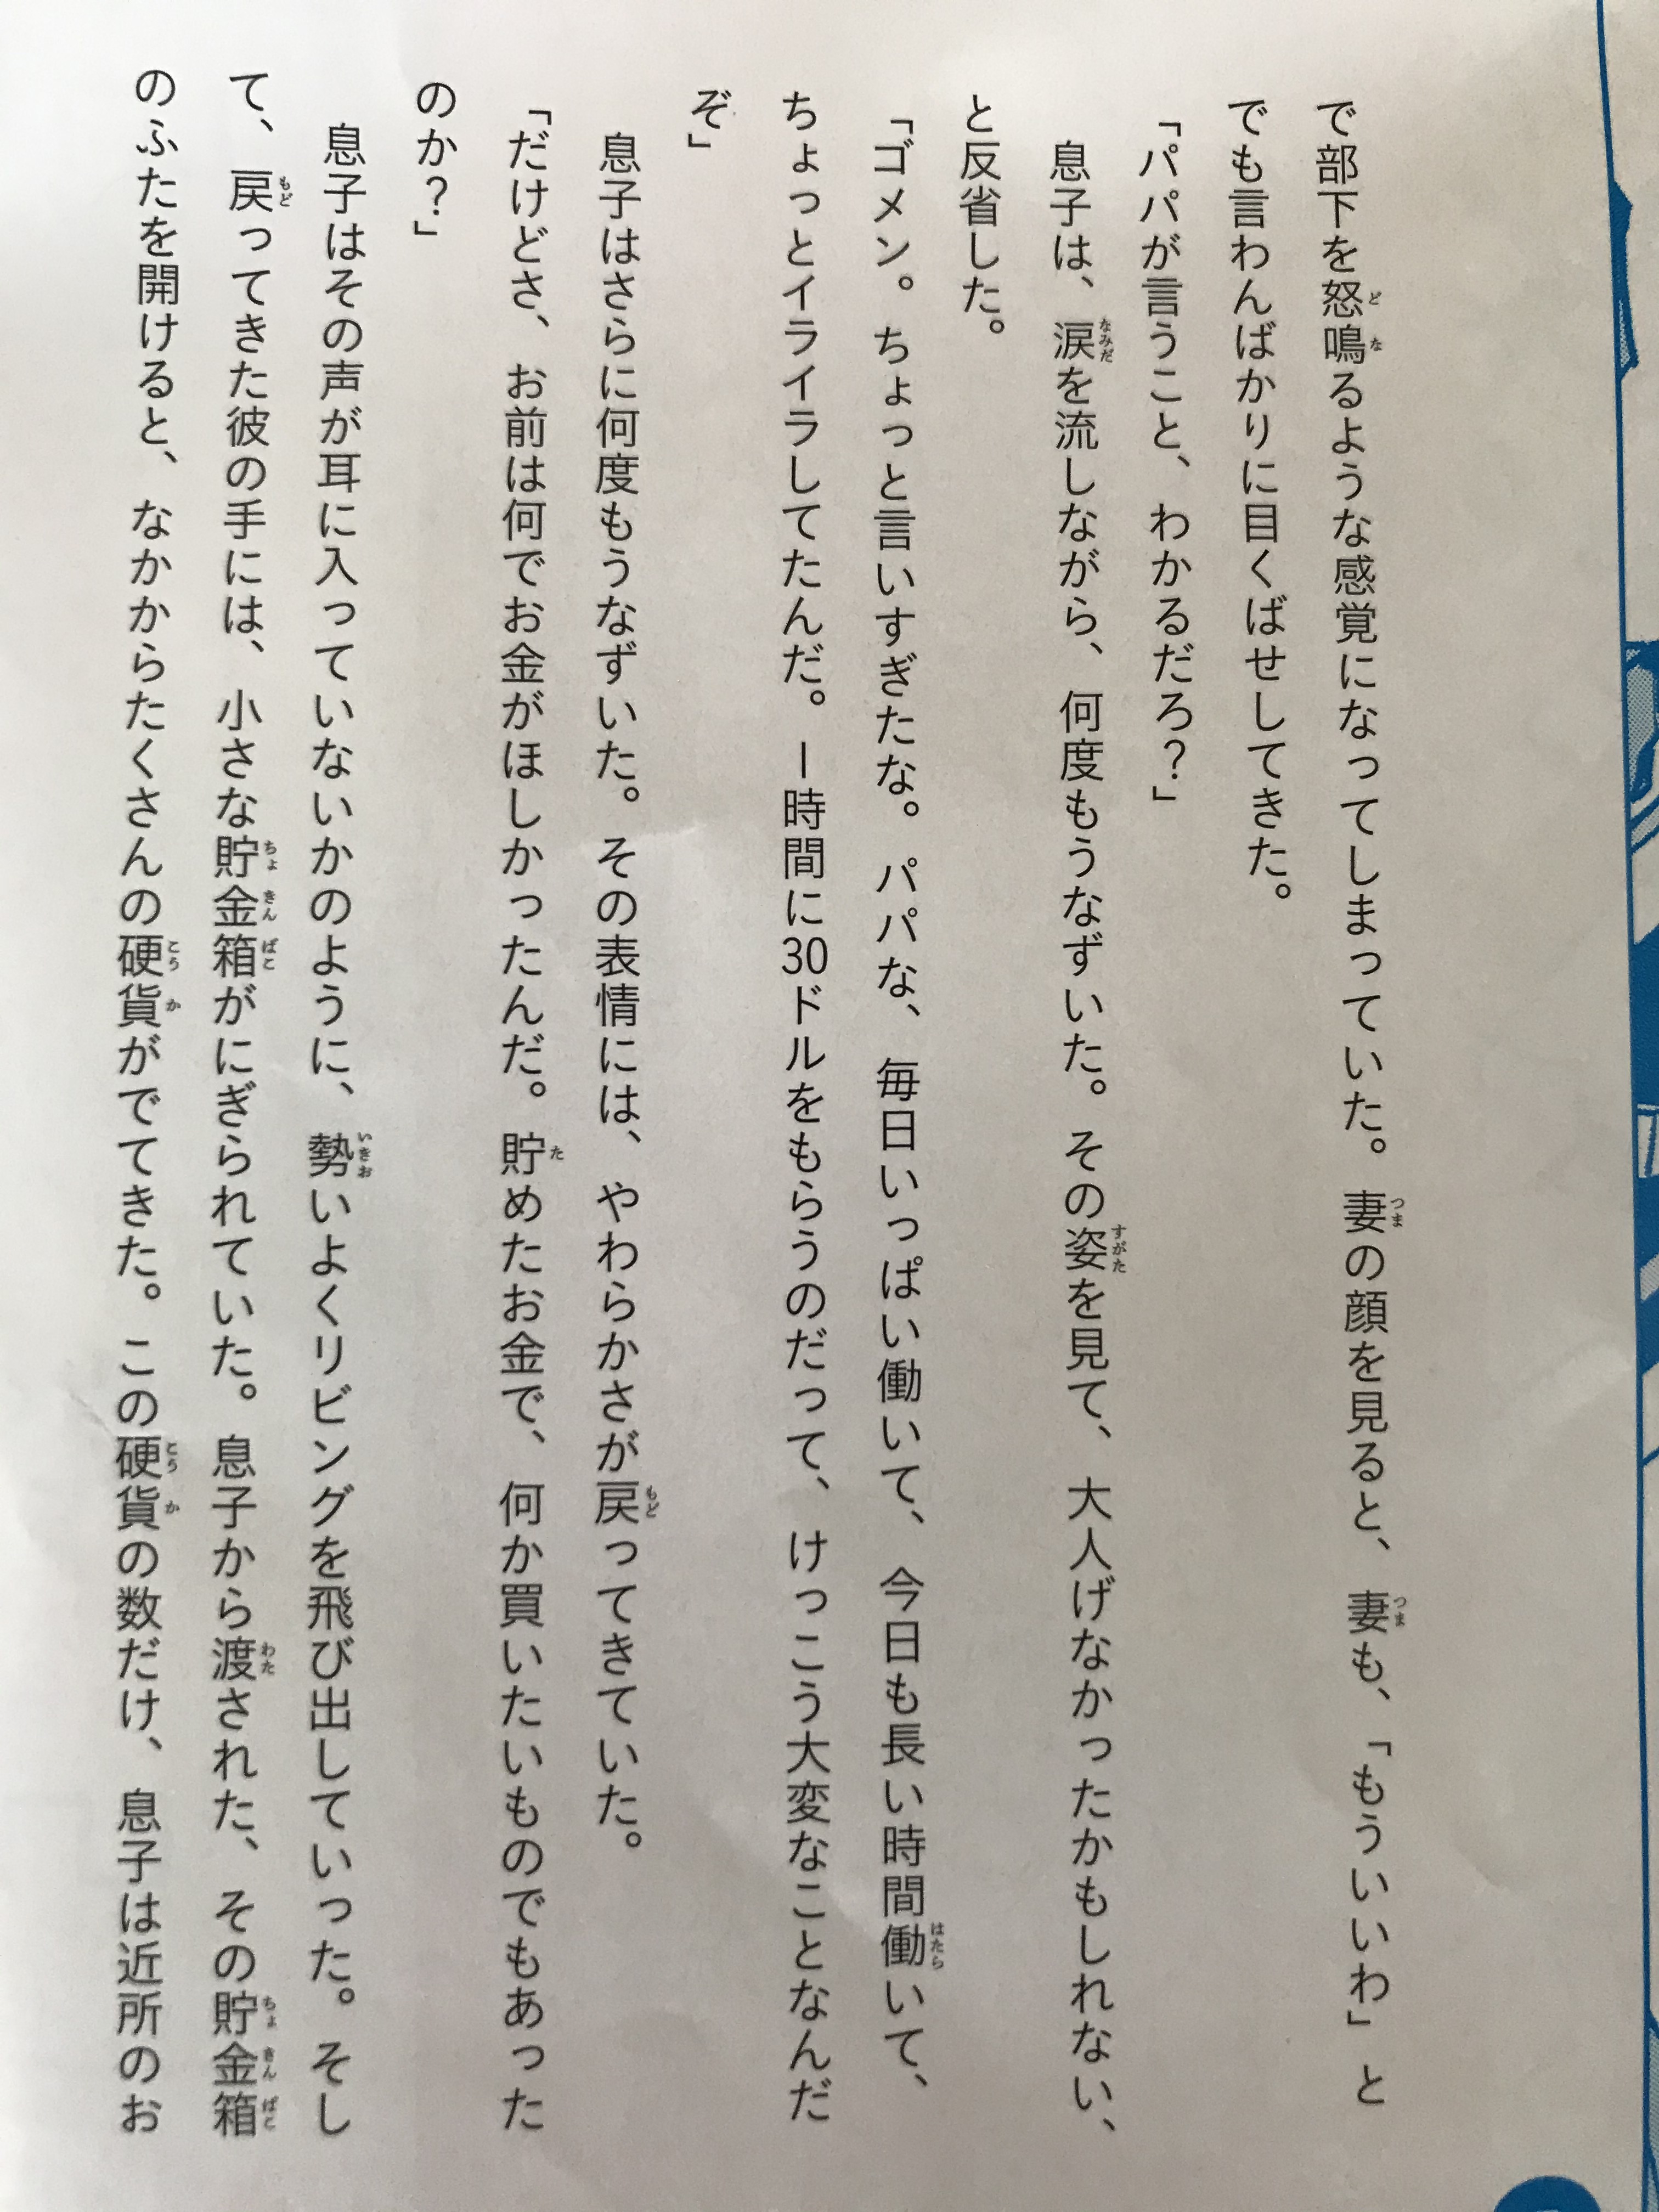 で部下を怒鳴るような感覚になってしまっていた。妻の顔を見ると、妻も、「もういいわ」と
でも言わんばかりに目くばせしてきた。
「パパが言うこと、わかるだろ?」
息子は、涙を流しながら、何度もうなずいた。その姿を見て、大人げなかったかもしれない、
と反省した。
「ゴメン。ちょっと言いすぎたな。パパな、毎日いっぱい働いて、今日も長い時間働いて、
ちょっとイライラしてたんだ。1時間に30ドルをもらうのだって、けっこう大変なことなんだ
ぞ」
息子はさらに何度もうなずいた。その表情には、やわらかさが戻ってきていた。
「だけどさ、お前は何でお金がほしかったんだ。貯めたお金で、何か買いたいものでもあった
のか?」
息子はその声が耳に入っていないかのように、勢いよくリビングを飛び出していった。そし
て、戻ってきた彼の手には、小さな貯金箱がにぎられていた。息子から渡された、その貯金箱
のふたを開けると、なかからたくさんの硬貨がでてきた。この硬貨の数だけ、息子は近所のお